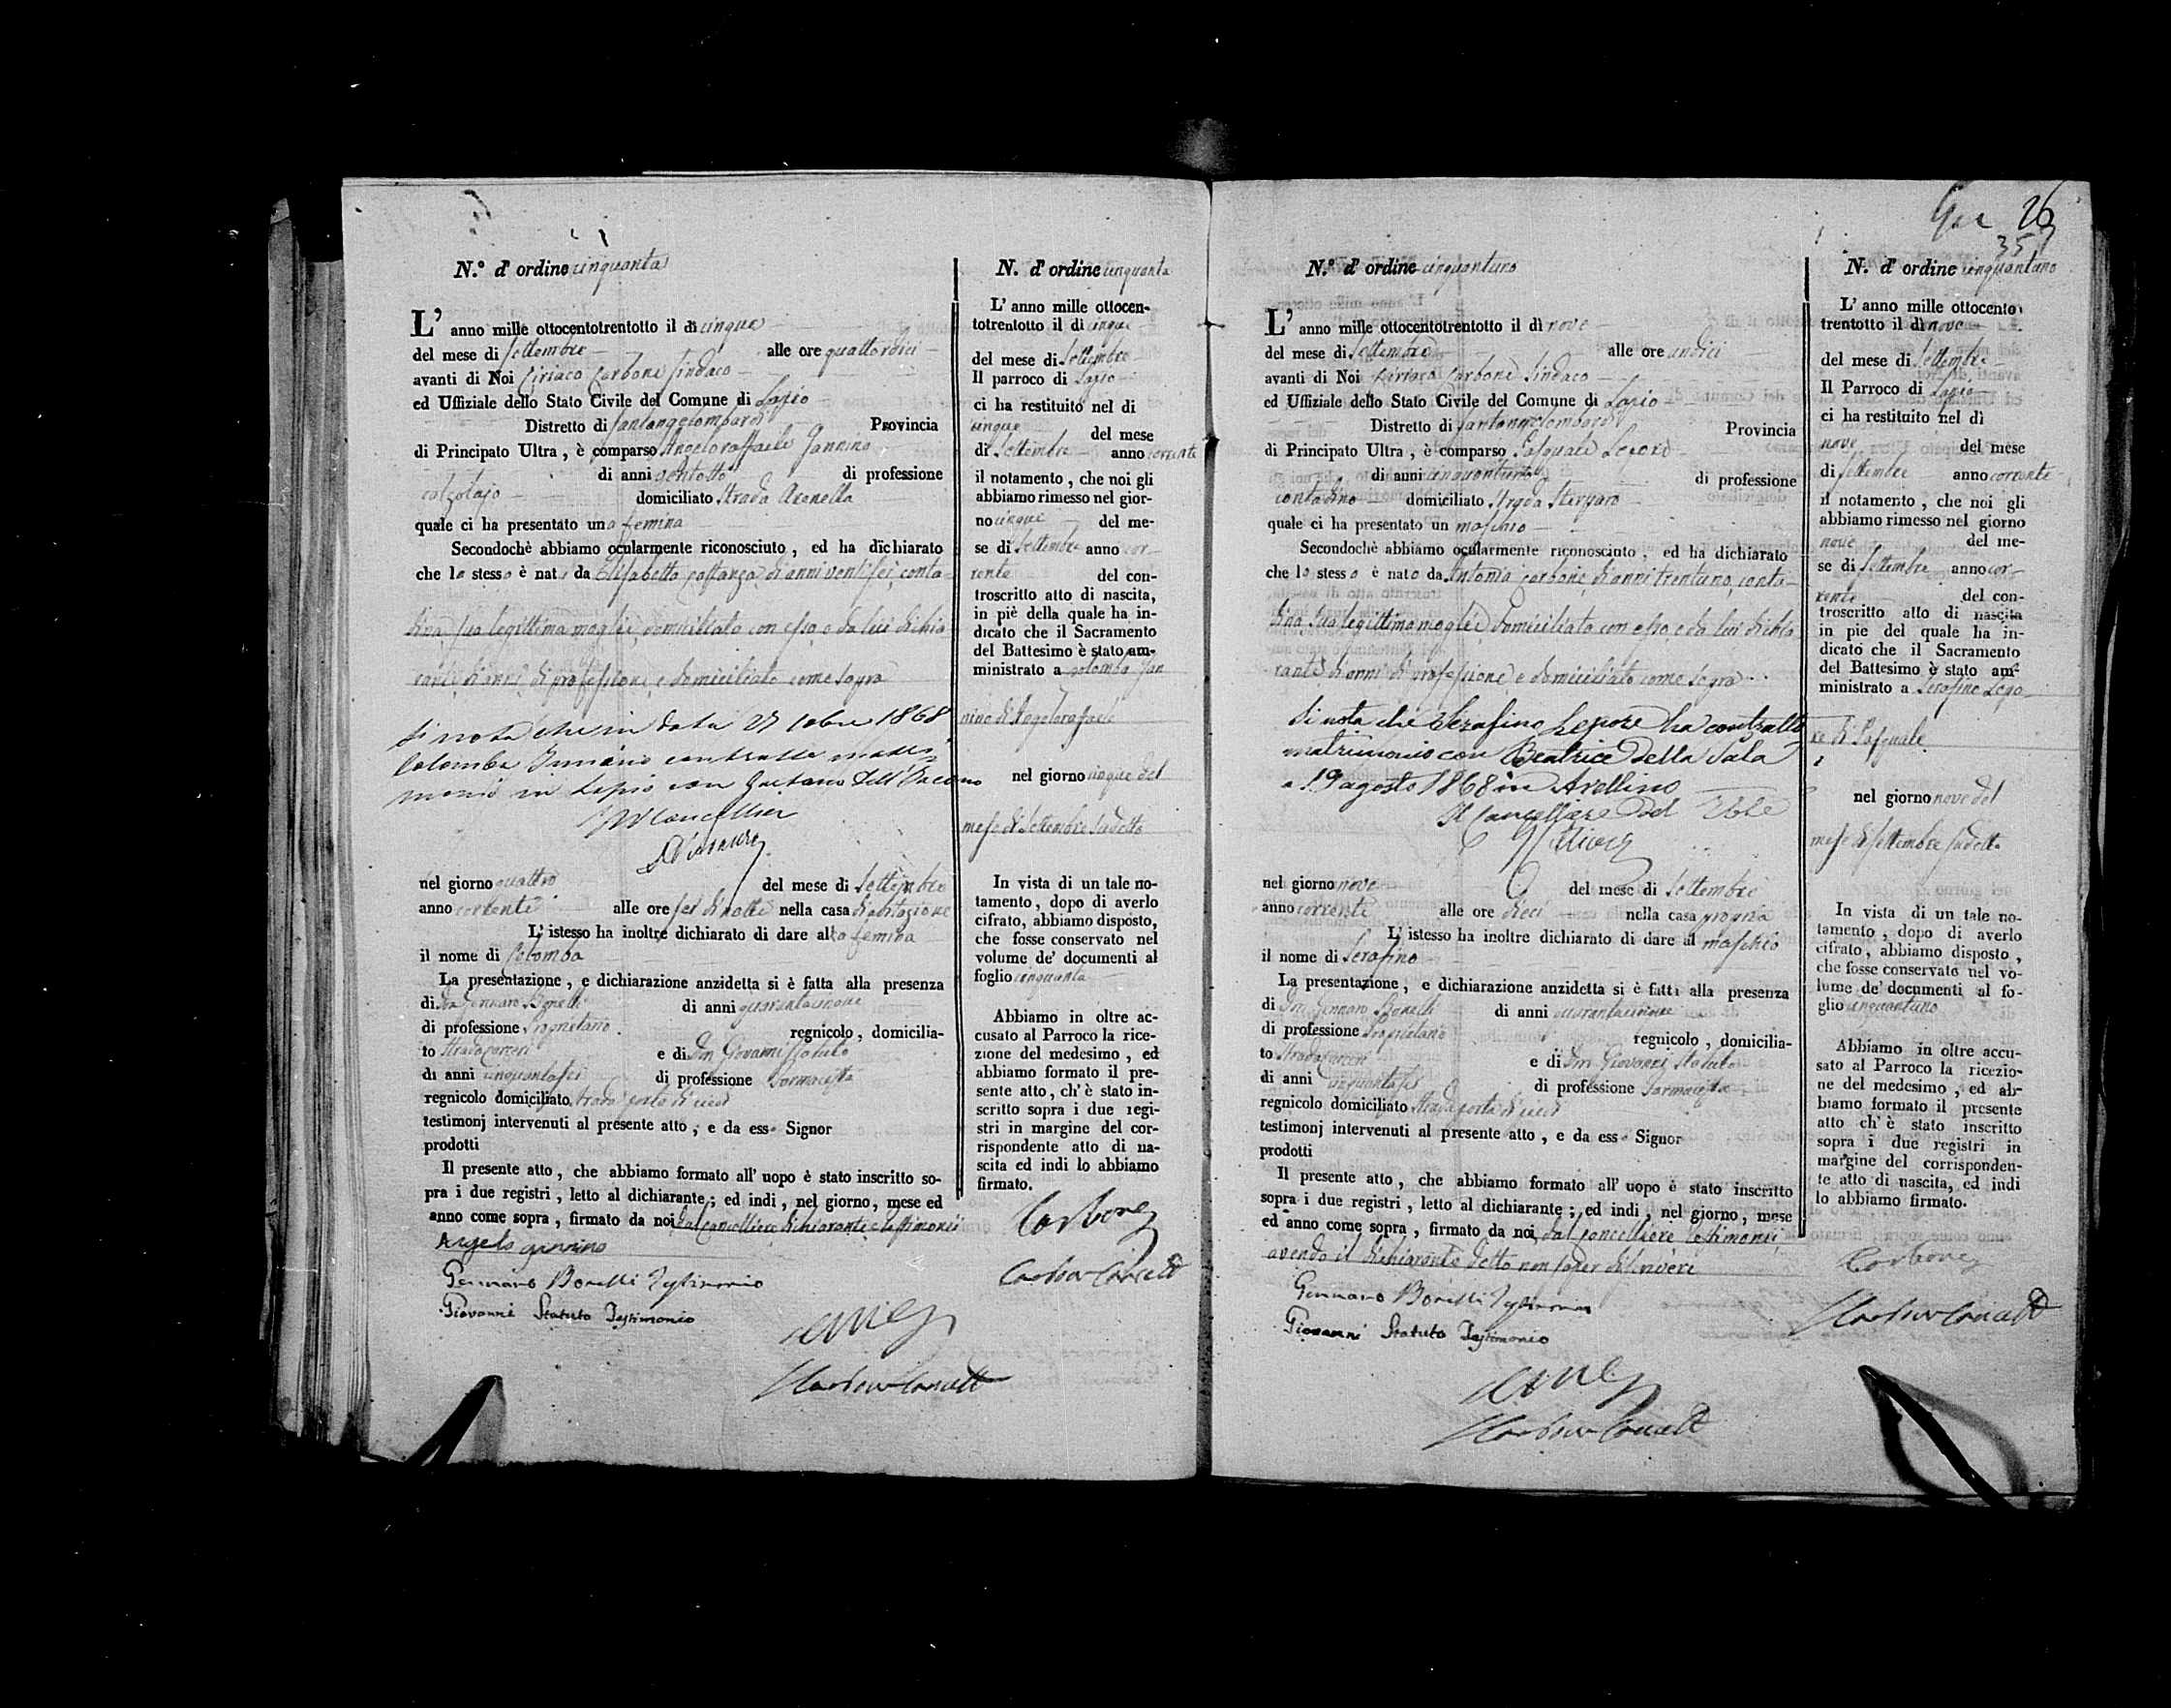 N.° d' ordine cinquanta
L' anno mille ottocentotrentotto il dì cinque
del mese di Settembre alle ore quattordici
avanti di Noi Ciriaco Carbone Sindaco
ed Uffiziale dello Stato Civile del Comune di Lapio
Distretto di Santangelombardi Provincia
di Principato Ultra, è comparso Angeloraffaele Jannino
di anni ventotto di professione
calzolajo domiciliato Strada Arenella
quale ci ha presentato una femina
Secondochè abbiamo ocularmente riconosciuto, ed ha dichiarato
che lo stesso è nat da Elisabetta di anni ventisei, conta-
dina, sua legittima moglie, domiciliata con esso e da lui dichia
rante di anni di professione, e domiciliato come sopra
Si nota che in data 27 1868
Colomba contrasse matri-
monio in Lapio con Gaetano
Il Cancelliere
nel giorno quattro del mese di Settembre
anno corrente alle ore sei di notte nella casa di abitazione
L' istesso ha inoltre dichiarato di dare alla femina
il nome di Colomba
La presentazione, e dichiarazione anzidetta si è fatta alla presenza
di Don Gennaro Borelli di anni quarantanove
di professione Proprietario regnicolo, domicilia-
to Strada Carceri e di Don Giovanni Statuto
di anni cinquantasei di professione Farmacista
regnicolo domiciliato strada porta di
testimonj intervenuti al presente atto, e da ess Signor
prodotti
Il presente atto, che abbiamo formato all' uopo è stato inscritto so-
pra i due registri, letto al dichiarante; ed indi, nel giorno, mese ed
anno come sopra, firmato da noi dal cancelliere dichiarante e testimonii
Angelo
Gennaro Borelli Testimonio
Giovanni Statuto Testimonio
N. d' ordine cinquanta
L' anno mille ottocen-
totrentotto il dì cinque
del mese di Settembre
Il parroco di Lapio
ci ha restituito nel di
cinque del mese
di Settembre anno corrente
il notamento, che noi gli
abbiamo rimesso nel gior-
no cinque del me-
se di Settembre anno cor-
rente del con-
troscritto atto di nascita,
in piè della quale ha in-
dicato che il Sacramento
del Battesimo è stato am-
ministrato a Colomba Jan
nino di Angeloraffaele
nel giorno cinque del
mese di Settembre sudetto
In vista di un tale no-
tamento, dopo di averlo
cifrato, abbiamo disposto,
che fosse conservato nel
volume de' documenti al
foglio cinquanta
Abbiamo in oltre ac-
cusato al Parroco la rice-
zione del medesimo, ed
abbiamo formato il pre-
sente atto, ch' è stato in-
scritto sopra i due regi-
stri in margine del cor-
rispondente atto di na-
scita ed indi lo abbiamo
firmato.
Carbone
26
35
N.° d' ordine cinquantuno
L' anno mille ottocentotrentotto il dì nove
del mese di Settembre alle ore undici
avanti di Noi Ciriaco Carbone Sindaco
ed Uffiziale dello Stato Civile del Comune di Lapio
Distretto di Santangelombardi Provincia
di Principato Ultra, è comparso Pasquale Lepore
di anni cinquantuno di professione
contadino domiciliato Strada
quale ci ha presentato un maschio
Secondochè abbiamo ocularmente riconosciuto, ed ha dichiarato
che lo stesso è nato da Antonia Carbone di anni trentuno, conta-
dina, sua legittima moglie domiciliata con esso e da lui dichia
rante di anni di professione, e domiciliato come sopra
Si nota che Serafino Lepore ha contratto
matrimonio con Beatrice Della Sala
a 19 agosto 1868 in Avellino
Il Cancelliere del
nel giorno nove del mese di Settembre
anno corrente alle ore dieci nella casa propria
L' istesso ha inoltre dichiarato di dare al maschio
il nome di Serafino
La presentazione, e dichiarazione anzidetta si è fatta alla presenza
di Don Gennaro Borelli di anni quarantanove
di professione Proprietario regnicolo, domicilia-
to Strada Carceri e di Don Giovanni Statuto
di anni cinquantasei di professione Farmacista
regnicolo domiciliato Strada porta di
testimonj intervenuti al presente atto, e da ess Signor
prodotti
Il presente atto, che abbiamo formato all' uopo è stato inscritto
sopra i due registri, letto al dichiarante; ed indi, nel giorno, mese
ed anno come sopra, firmato da noi, dal cancelliere testimonii,
avendo il dichiarante detto non saper di scrivere
Gennaro Borelli Testimonio
Giovanni Statuto Testimonio
N. d' ordine cinquantuno
L' anno mille ottocento
trentotto il dì nove
del mese di Settembre
Il Parroco di Lapio
ci ha restituito nel dì
nove del mese
di Settembre anno corrente
il notamento, che noi gli
abbiamo rimesso nel giorno
nove del me-
se di Settembre anno cor-
rente del con-
troscritto atto di nascita
in pie del quale ha in-
dicato che il Sacramento
del Battesimo è stato am-
ministrato a Serafino Lepo
re di Pasquale
nel giorno nove del
mese di Settembre sudetto
In vista di un tale no-
tamento, dopo di averlo
cifrato, abbiamo disposto,
che fosse conservato nel vo-
lume de' documenti al fo-
glio cinquantuno
Abbiamo in oltre accu-
sato al Parroco la ricezio-
ne del medesimo, ed ab-
biamo formato il presente
atto ch' è stato inscritto
sopra i due registri in
margine del corrisponden-
te atto di nascita, ed indi
lo abbiamo firmato.
Carbone